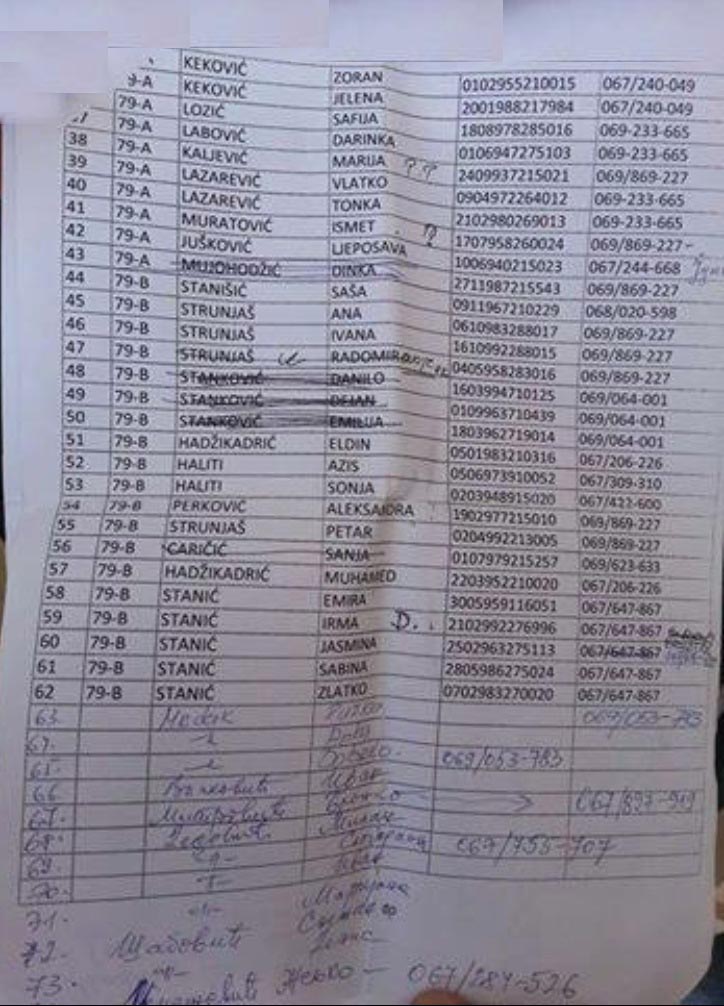 KEKOVIĆ ZORAN 0102955210015 067/240-049
KEKOVIĆ JELENA 2001988217984 067/240-049
79-A LOZIĆ SAFIJA 1808978285016 069-233-665
79-A LABOVIĆ DARINKA 0106947275103 069-233-665
38 79-A KALJEVIĆ MARIJA ?? 2409937215021 069/869-227
39 79-A LAZAREVIĆ VLATKO 0904972264012 069-233-665
40 79-A LAZAREVIĆ TONKA 2102980269013 069-233-665
41 79-A MURATOVIĆ ISMET ? 1707958260024 069/869-227
42 79-A JUŠKOVIĆ LJEPOSAVA 1006940215023 067/244-668
43 79-A MUJOHODŽIĆ DINKA 2711987215543 069/869-227
44 79-B STANIŠIĆ SAŠA 0911967210229 068/020-598
45 79-B STRUNJAŠ ANA 0610983288017 069/869-227
46 79-B STRUNJAŠ IVANA 1610992288015 069/869-227
47 79-B STRUNJAŠ RADOMIR 0405958283016 069/869-227
48 79-B STANKOVIĆ DANILO 1603994710125 069/064-001
49 79-B STANKOVIĆ DEJAN 0109963710439 069/064-001
50 79-B STANKOVIĆ EMILIJA 1803962719014 069/064-001
51 79-B HADŽIKADRIĆ ELDIN 0501983210316 067/206-226
52 79-B HALITI AZIS 0506973910052 067/309-310
53 79-B HALITI SONJA 0203948915020 067/422-600
54 79-B PERKOVIĆ ALEKSANDRA 1902977215010 069/869-227
55 79-B STRUNJAŠ PETAR 0204992213005 069/869-227
56 79-B CARIČIĆ SANJA 0107979215257 069/623-633
57 79-B HADŽIKADRIĆ MUHAMED 2203952210020 067/206-226
58 79-B STANIĆ EMIRA 3005959116051 067/647-867
59 79-B STANIĆ IRMA D. 2102992276996 067/647-867
60 79-B STANIĆ JASMINA 2502963275113 067/647-867
61 79-B STANIĆ SABINA 2805986275024 067/647-867
62 79-B STANIĆ ZLATKO 0702983270020 067/647-867
63. 069/053-783
64.
65. 069/053-783
66
67. 067/897-919
68. Милан
69. 067/753-707
70.
71. Маријана
72. Шабовић
73. 067/284-526